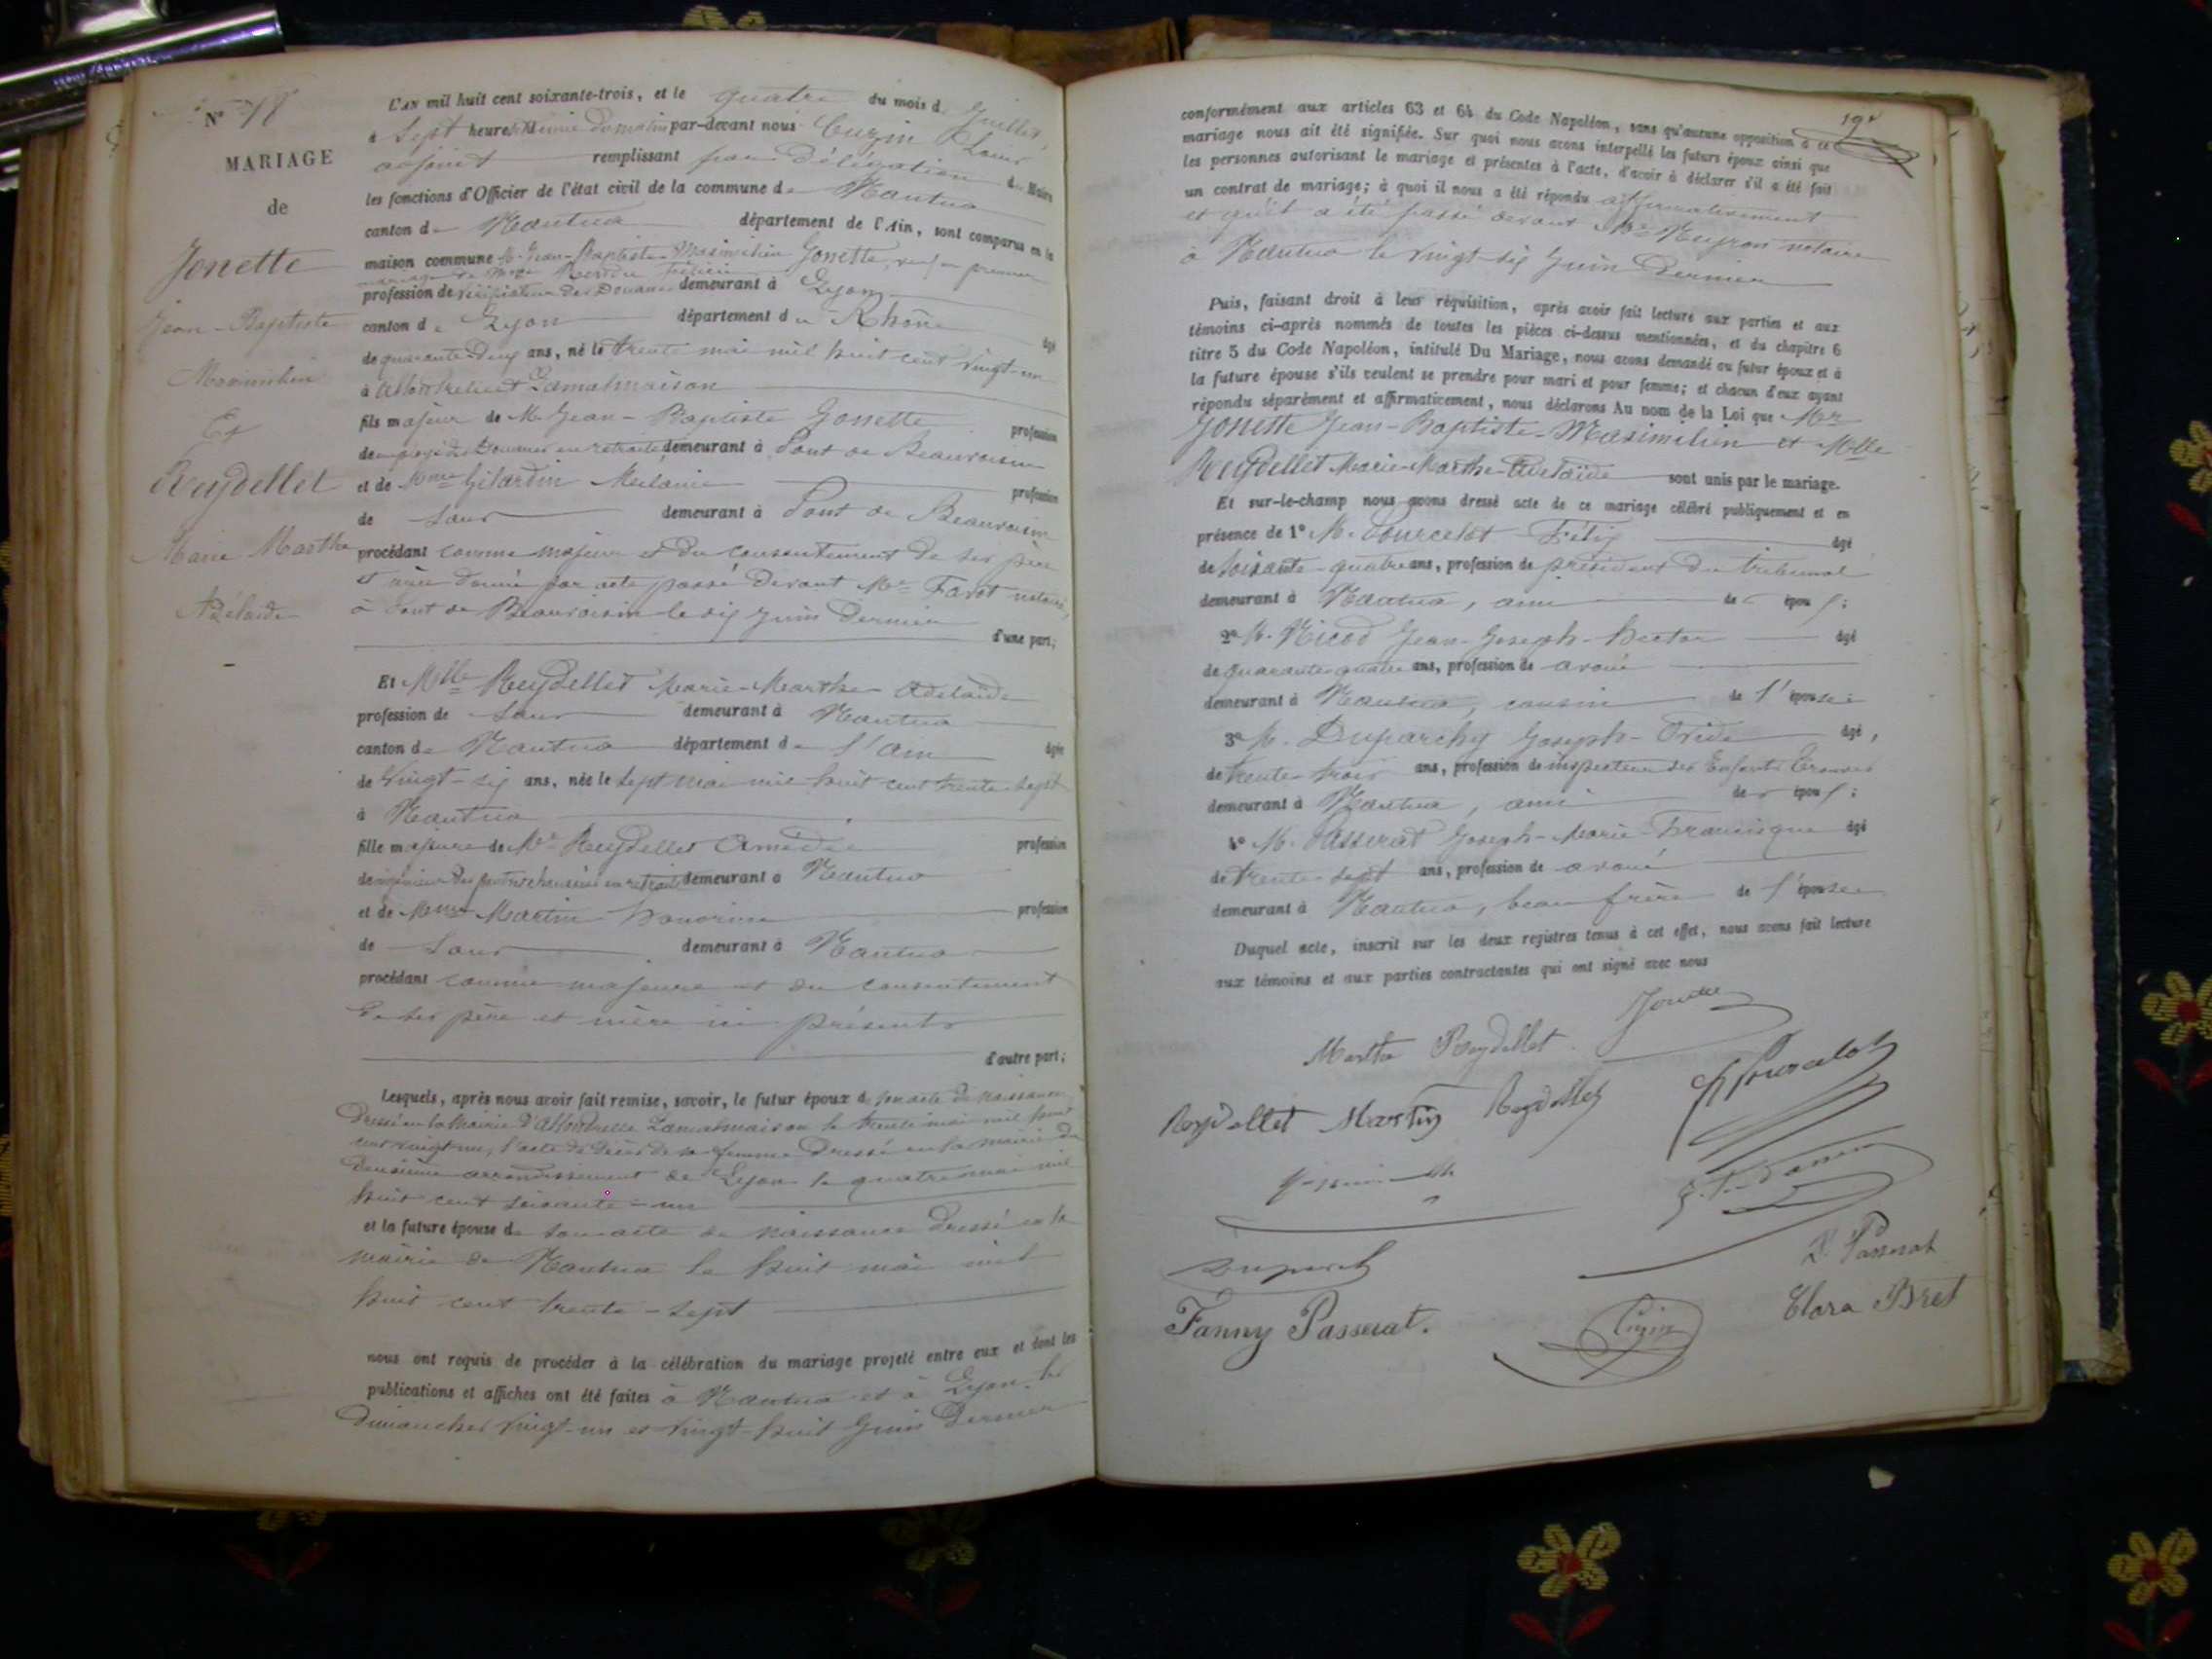 N° 18
MARIAGE
de
Jonette
Jean-Baptiste
Maximilien
Et
Reydellet
Marie Marthe
Adélaïde
L'AN mil huit cent soixante-trois, et le quatre du mois de Juillet,
à sept heures demie du matin par-devant nous Cuzin Louis
adjoint remplissant par Délégation du Maire
les fonctions d'Officier de l'état civil de la commune de Nantua
canton de Nantua département de l'Ain, sont comparus en la
maison commune M. Jean-Baptiste-Maximilien Jonette, veuf en premier
mariage de Mme
profession de vérificateur des Douanes demeurant à Lyon
canton de Lyon département du Rhône âgé
de quarante-deux ans, né le trente mai mil huit cent vingt-un
à Lamalmaison
fils majeur de M. Jean-Baptiste Jonette profession
d'employé des Douanes en retraite, demeurant à Pont de Beauvoisin
et de Mme Gilardin Mélanie profession
de sans demeurant à Pont de Beauvoisin
procédant comme majeur et du consentement de ses père
et mère donné par acte passé devant Me Favot notaire
à Pont de Beauvoisin le dix juin dernier
d'une part;
Et Mlle Reydellet Marie-Marthe-Adélaïde
profession de sans demeurant à Nantua
canton de Nantua département de l'Ain âgée
de vingt-six ans, née le sept mai mil huit cent trente-sept
à Nantua
fille majeure de Mr Reydellet Amédée profession
d'ingénieur des ponts et chaussées en retraite demeurant à Nantua
et de Mme Martin Honorine profession
de sans demeurant à Nantua
procédant comme majeure et du consentement
de ses père et mère ici présents
d'autre part;
Lesquels, après nous avoir fait remise, savoir, le futur époux de son acte de naissance
dressé en la Mairie d' Lamalmaison le trente mai mil huit
cent vingt-un, l'acte de décès de sa femme dressé en la mairie du
deuxième arrondissement de Lyon le quatre mai mil
huit cent soixante-un
et la future épouse de son acte de naissance dressé en la
mairie de Nantua le huit mai mil
huit cent trente-sept
nous ont requis de procéder à la célébration du mariage projeté entre eux et dont les
publications et affiches ont été faites à Nantua et à Lyon les
dimanches vingt-un et vingt-huit Juin dernier
conformément aux articles 63 et 64 du Code Napoléon, sans qu'aucune opposition à ce
mariage nous ait été signifiée. Sur quoi nous avons interpellé les futurs époux ainsi que
les personnes autorisant le mariage et présentes à l'acte, d'avoir à déclarer s'il a été fait
un contrat de mariage; à quoi il nous a été répondu affirmativement
et qu'il a été passé devant Me notaire
à Nantua le vingt-six Juin dernier
Puis, faisant droit à leur réquisition, après avoir fait lecture aux parties et aux
témoins ci-après nommés de toutes les pièces ci-dessus mentionnées, et du chapitre 6
titre 5 du Code Napoléon, intitulé Du Mariage, nous avons demandé au futur époux et à
la future épouse s'ils veulent se prendre pour mari et pour femme; et chacun d'eux ayant
répondu séparément et affirmativement, nous déclarons Au nom de la Loi que Mr
Jonette Jean-Baptiste-Maximilien et Mlle
Reydellet Marie-Marthe-Adélaïde sont unis par le mariage.
Et sur-le-champ nous avons dressé acte de ce mariage célébré publiquement et en
présence de 1° M. Pourcelot Félix âgé
de soixante-quatre ans, profession de président du tribunal
demeurant à Nantua, ami de époux;
2° M. Nicod Jean-Joseph-Hector âgé
de quarante-quatre ans, profession de avoué
demeurant à Nantua, cousin de l'épouse;
3° M. Duparchy Joseph-Ovide âgé,
de trente-trois ans, profession de inspecteur des Enfants Trouvés
demeurant à Nantua, ami de époux;
4° M. Passerat Joseph-Marie-Francisque âgé
de trente-sept ans, profession de avoué
demeurant à Nantua, beau frère de l'épouse
Duquel acte, inscrit sur les deux registres tenus à cet effet, nous avons fait lecture
aux témoins et aux parties contractantes qui ont signé avec nous
Jonette
Marthe Reydellet
Pourcelot
Reydellet Martin Reydellet
Duparchy
Passerat
Fanny Passerat.
Cuzin
Clara Bret